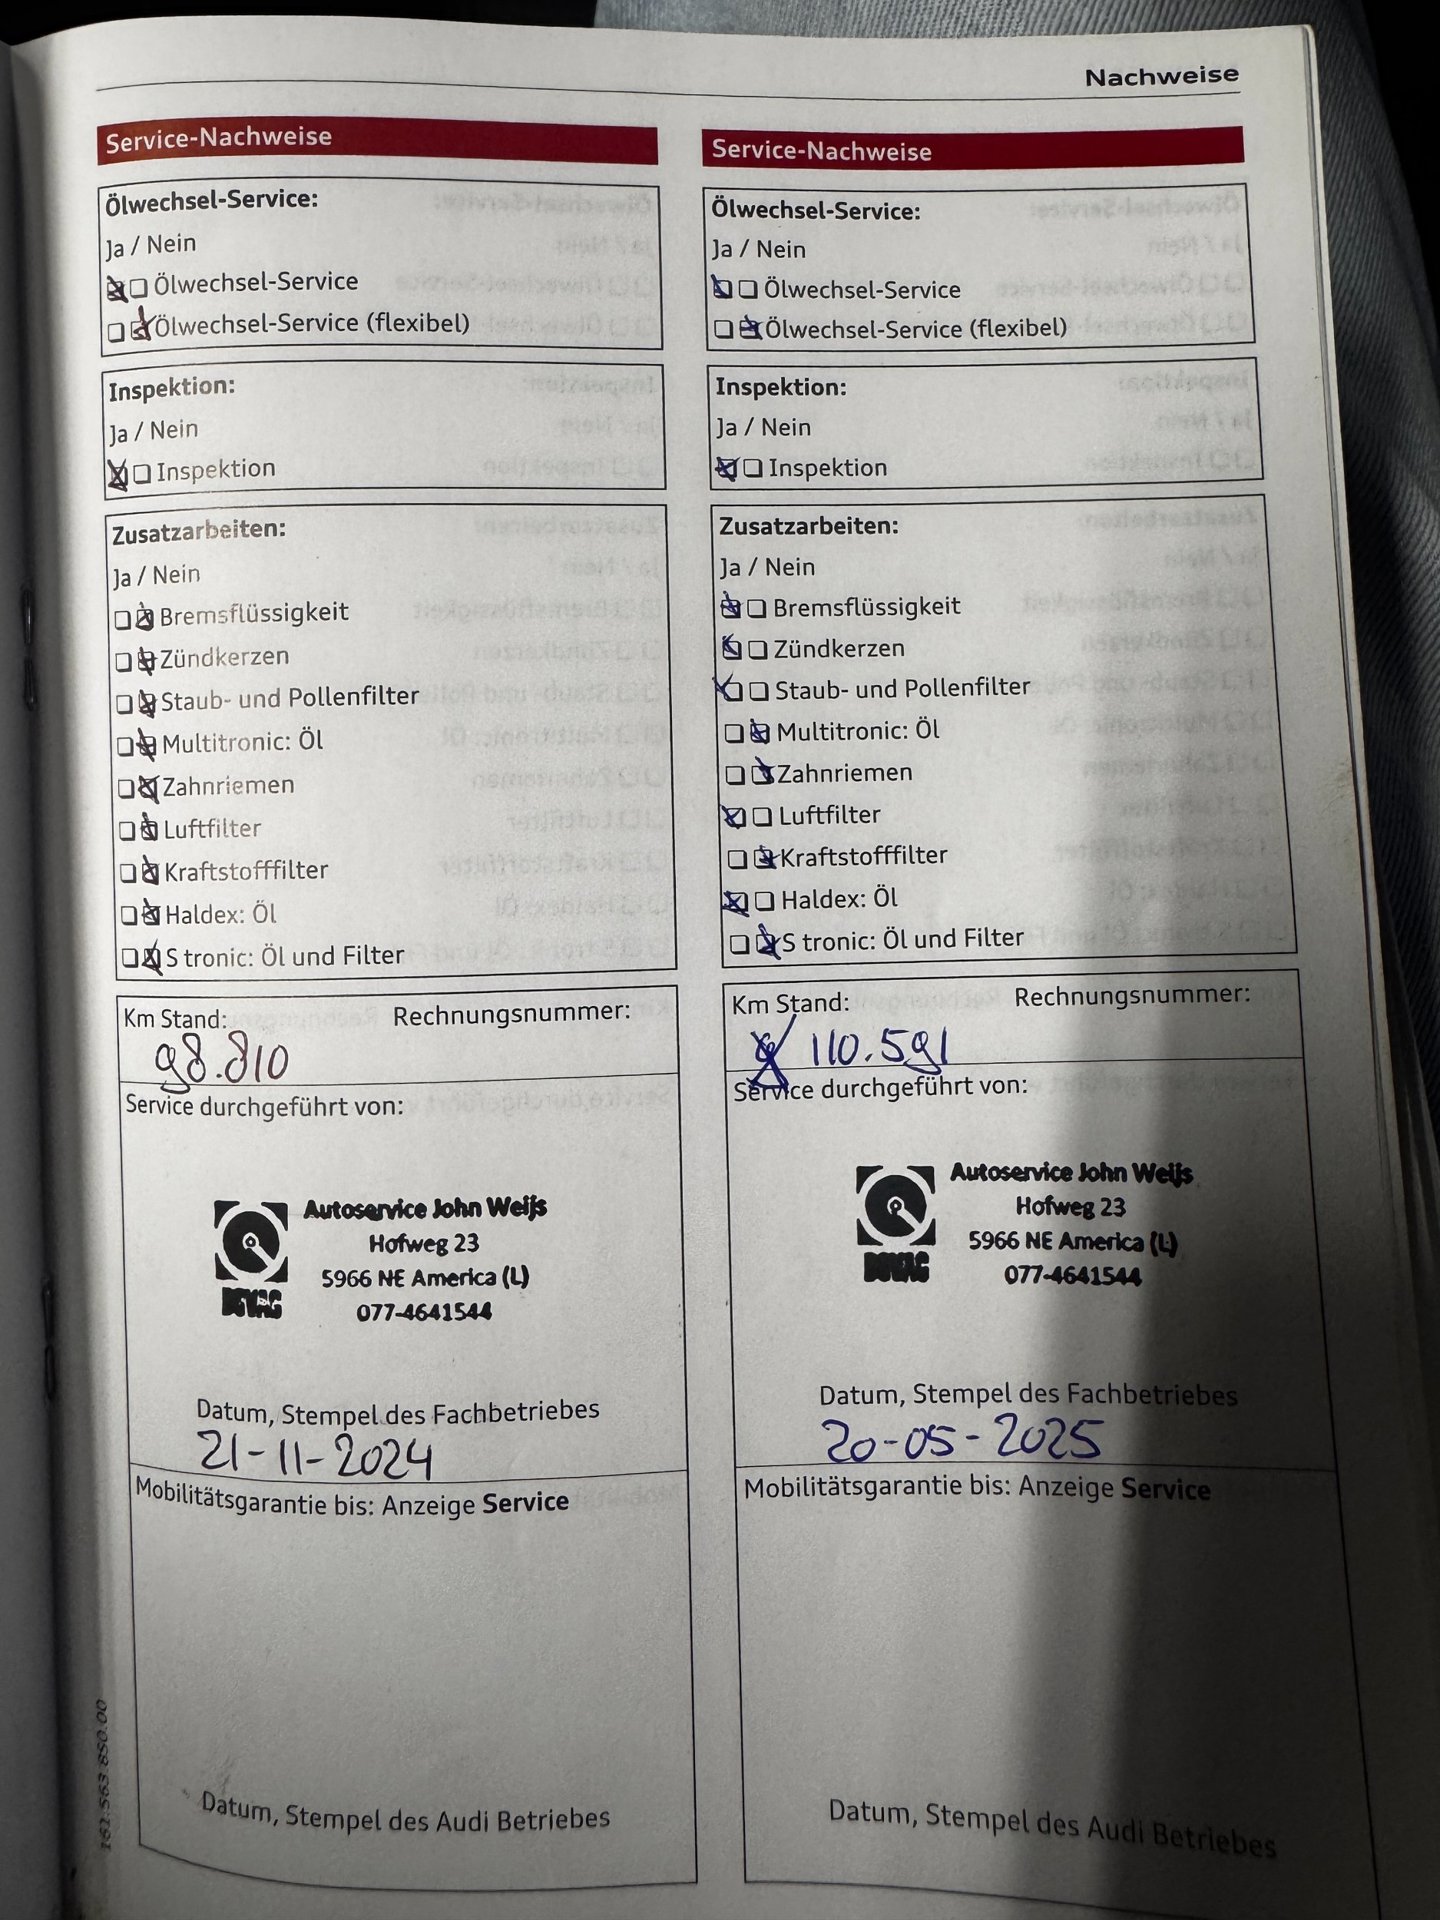 Nachweise
Service-Nachweise
Ölwechsel-Service:
Ja / Nein
Ölwechsel-Service
Ölwechsel-Service (flexibel)
Inspektion:
Ja / Nein
Inspektion
Zusatzarbeiten:
Ja / Nein
Bremsflüssigkeit
Zündkerzen
Staub- und Pollenfilter
Multitronic: Öl
Zahnriemen
Luftfilter
Kraftstofffilter
Haldex: Öl
S tronic: Öl und Filter
Km Stand: Rechnungsnummer:
98.810
Service durchgeführt von:
Autoservice John Weijs
Hofweg 23
5966 NE America (L)
077-4641544
BOVAG
Datum, Stempel des Fachbetriebes
21-11-2024
Mobilitätsgarantie bis: Anzeige Service
Datum, Stempel des Audi Betriebes
161.563.850.00
Service-Nachweise
Ölwechsel-Service:
Ja / Nein
Ölwechsel-Service
Ölwechsel-Service (flexibel)
Inspektion:
Ja / Nein
Inspektion
Zusatzarbeiten:
Ja / Nein
Bremsflüssigkeit
Zündkerzen
Staub- und Pollenfilter
Multitronic: Öl
Zahnriemen
Luftfilter
Kraftstofffilter
Haldex: Öl
S tronic: Öl und Filter
Km Stand: Rechnungsnummer:
110.591
Service durchgeführt von:
Autoservice John Weijs
Hofweg 23
5966 NE America (L)
077-4641544
BOVAG
Datum, Stempel des Fachbetriebes
20-05-2025
Mobilitätsgarantie bis: Anzeige Service
Datum, Stempel des Audi Betriebes